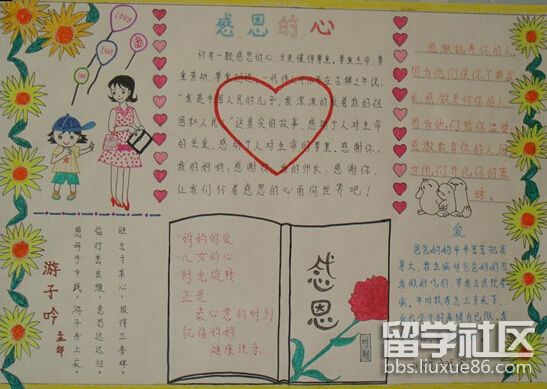 感恩的心
LOVE
LOVE
怀有一颗感恩的心,才更懂得尊重。尊重生命、尊
重劳动、尊重创造。一代伟人邓小平在古稀之年说:
"我是中国人民的儿子,我深深的爱着我的祖
国和人民。"这最美的故事,感动于人对生命
的关爱,感动于人对生命的尊重,感谢你,
我的妈妈;感谢你,我的师长;感谢你,
让我们怀着感恩的心面向世界吧!
感激抚养你的人,
因为他们使你不断成
长感激关怀你的人,
因为,他们给你温暖
感激教育你的人,因
为他们开化你的蒙
昧。
爱
爸爸妈妈辛辛苦苦把我
养大,我生病时爸爸妈妈
游子吟
孟郊
慈母手中线,游子身上衣。
临行密密缝,意恐迟迟归。
谁言寸草心,报得三春晖。
妈妈的爱
儿女的心
时光旋转
正是
表心意的时刻
祝福妈妈
健康快乐
感恩
留学社区
bbs.liuxue86.com